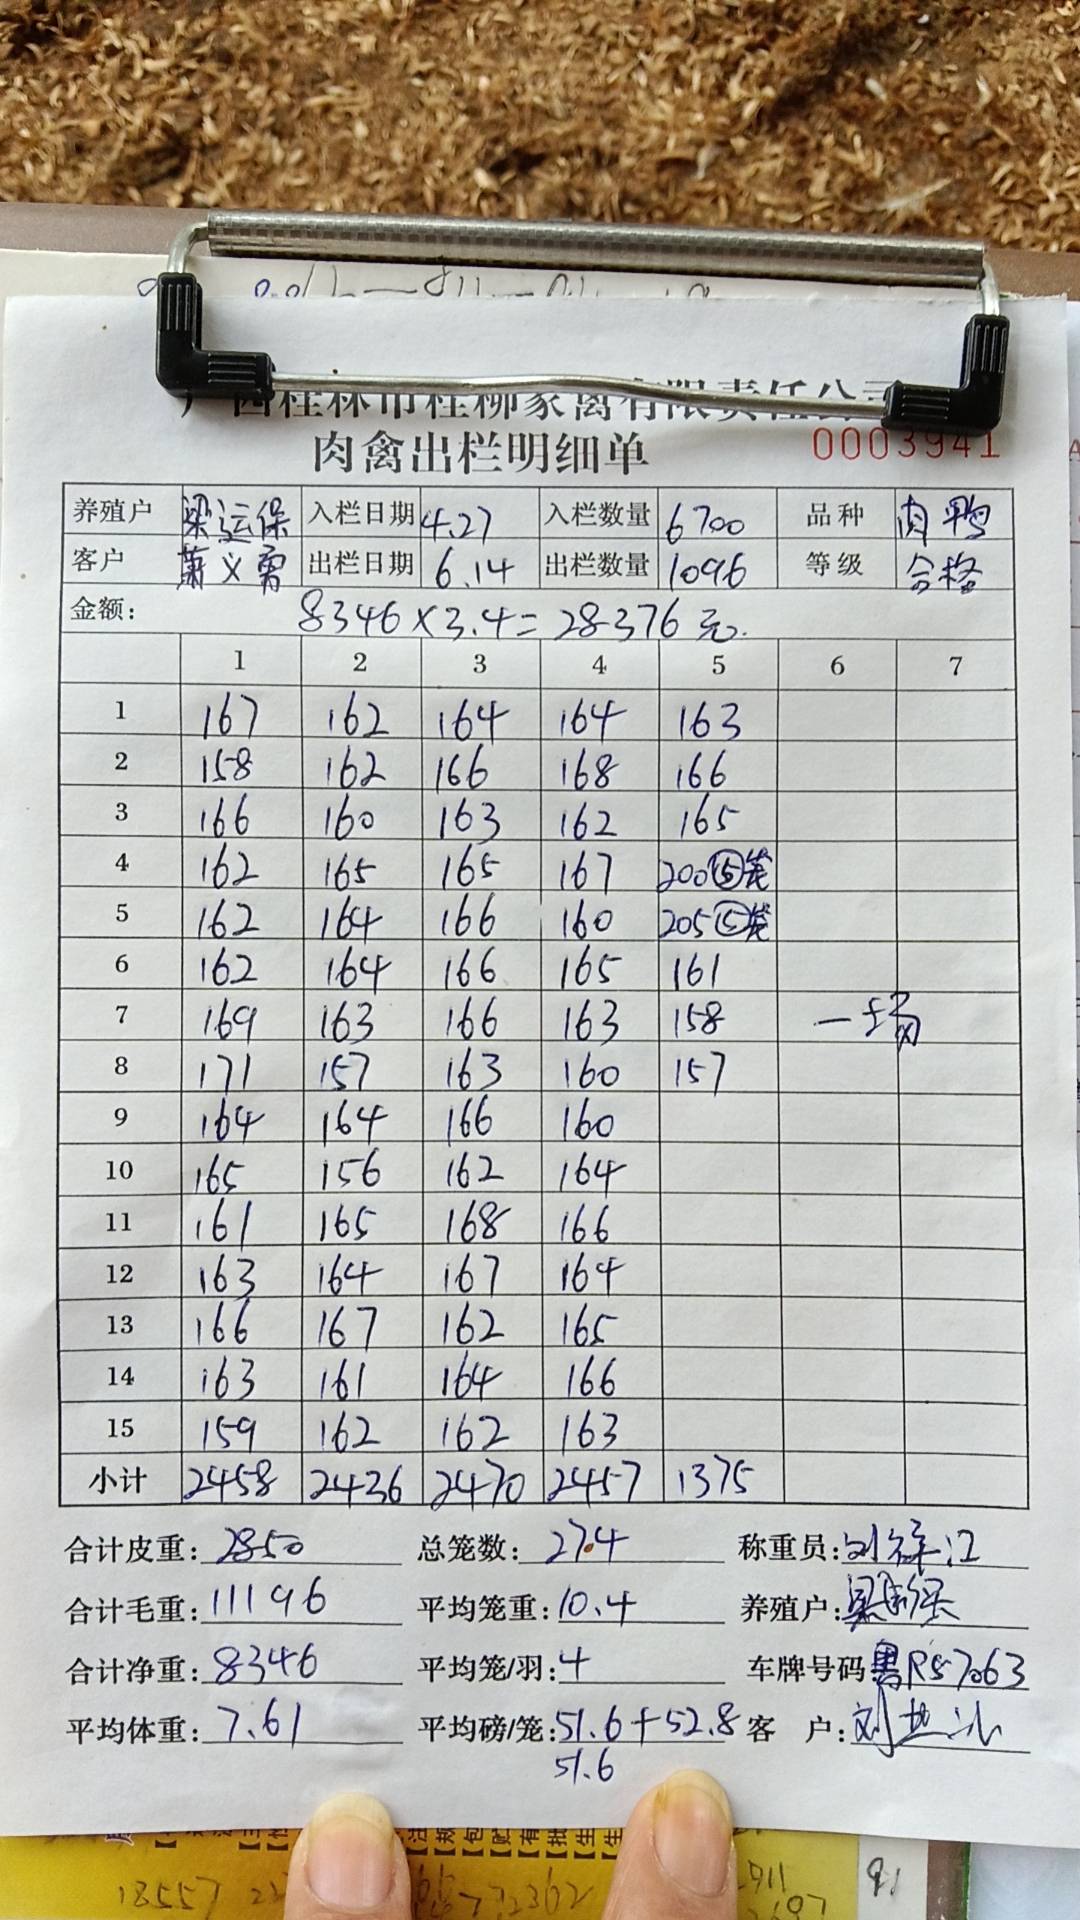 广西桂林市桂柳家禽有限责任公司
肉禽出栏明细单 0003941
养殖户 梁运保 入栏日期 4.27 入栏数量 6700 品种 肉鸭
客户 萧义勇 出栏日期 6.14 出栏数量 1096 等级 合格
金额: 8346×3.4=28376元.
1 2 3 4 5 6 7
1 167 162 164 164 163
2 158 162 166 168 166
3 166 160 163 162 165
4 162 165 165 167 200⑤笼
5 162 164 166 160 205⑤笼
6 162 164 166 165 161
7 169 163 166 163 158 一场
8 171 157 163 160 157
9 164 164 166 160
10 165 156 162 164
11 161 165 168 166
12 163 164 167 164
13 166 167 162 165
14 163 161 164 166
15 159 162 162 163
小计 2458 2436 2470 2457 1375
合计皮重: 2850 总笼数: 274 称重员: 刘祥江
合计毛重: 11196 平均笼重: 10.4 养殖户:
合计净重: 8346 平均笼/羽: 4 车牌号码 粤R57063
平均体重: 7.61 平均磅/笼: 51.6+52.8 客 户: 刘
51.6
18557